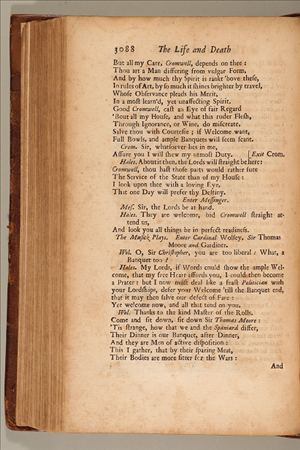 3088 The Life and Death
But all my Care, Cromwell, depends on thee:
Thou art a Man differing from vulgar Form,
And by how much thy Spirit is rankt 'bove these,
In rules of Art, by so much it shines brighter by travel,
Whose Observance pleads his Merit,
In a most learn'd, yet unaffecting Spirit.
Good Cromwell, cast an Eye of fair Regard
'Bout all my House, and what this ruder Flesh,
Through Ignorance, or Wine, do miscreate,
Salve thou with Courtesie: if Welcome want,
Full Bowls, and ample Banquets will seem scant.
Crom. Sir, whatsoever lies in me,
Assure you I will shew my utmost Duty. [Exit Crom.
Hales. About it then, the Lords will straight be here:
Cromwell, thou hast those parts would rather sute
The Service of the State than of my House:
I look upon thee with a loving Eye,
That one Day will prefer thy Destiny.
Enter Messenger.
Mes. Sir, the Lords be at hand.
Hales. They are welcome, bid Cromwell straight at-
tend us,
And look you all things be in perfect readiness.
The Musick Plays. Enter Cardinal Wolsey, Sir Thomas
Moore and Gardiner.
Wol. O, Sir Christopher, you are too liberal: What, a
Banquet too?
Hales. My Lords, if Words could show the ample Wel-
come, that my free Heart affords you, I could then become
a Prater: but I now must deal like a feast Politician with
your Lordships, defer your Welcome 'till the Banquet end,
that it may then salve our defect of Fare:
Yet welcome now, and all that tend on you.
Wol. Thanks to the kind Master of the Rolls.
Come and sit down, sit down Sir Thomas Moore:
'Tis strange, how that we and the Spaniard differ,
Their Dinner is our Banquet, after Dinner,
And they are Men of active disposition:
This I gather, that by their sparing Meat,
Their Bodies are more fitter for the Wars:
And